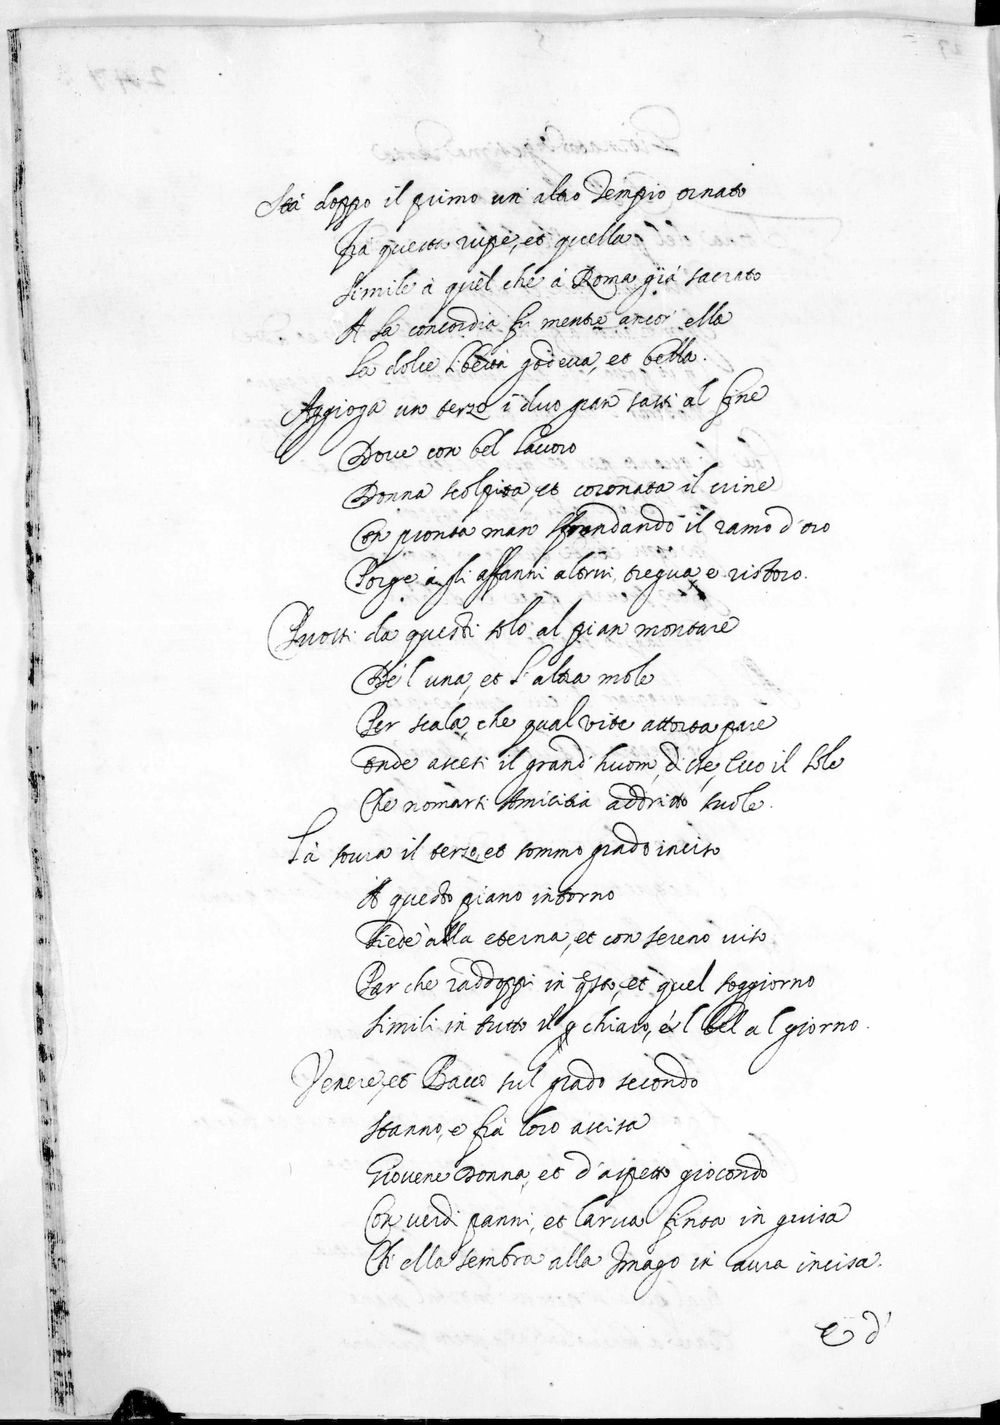 Stà doppo il primo un' altro Tempio ornato
Frà questa rupe, et quella
Simile à quel che à Roma già sacrato
A la concordia fù mentre ancor' ella
La dolce libertà godeua, et bella.
Aggioga un terzo i duo gran sassi al fine
Doue con bel lauoro
Donna scolpita, et coronata il crine
Con pronta man sfrondando il ramo d'oro
Porge à gli affanni altrui tregua e ristoro.
Puossi da questi solo al pian montare
De l' una, et l' altra mole
Per scala, che qual vite attorta pare
onde ascesi il grand' huom, disse, ecco il sole
Che nomarsi Amicitia addritto suole.
Là soura il terzo, et sommo grado inciso
A questo piano intorno
Siede alla eterna, et con sereno uiso
Par che raddoppi in q̃sto, et quel soggiorno
Simili in tutto il chiaro, é l bel al giorno.
Venere, et Bacco sul grado secondo
Stanno, e frà loro assisa
Giouene Donna, et d' aspetto giocondo
Con uerdi panni, et larua finta in guisa
Ch' ella sembra alla Imago in aura incisa.
E d'